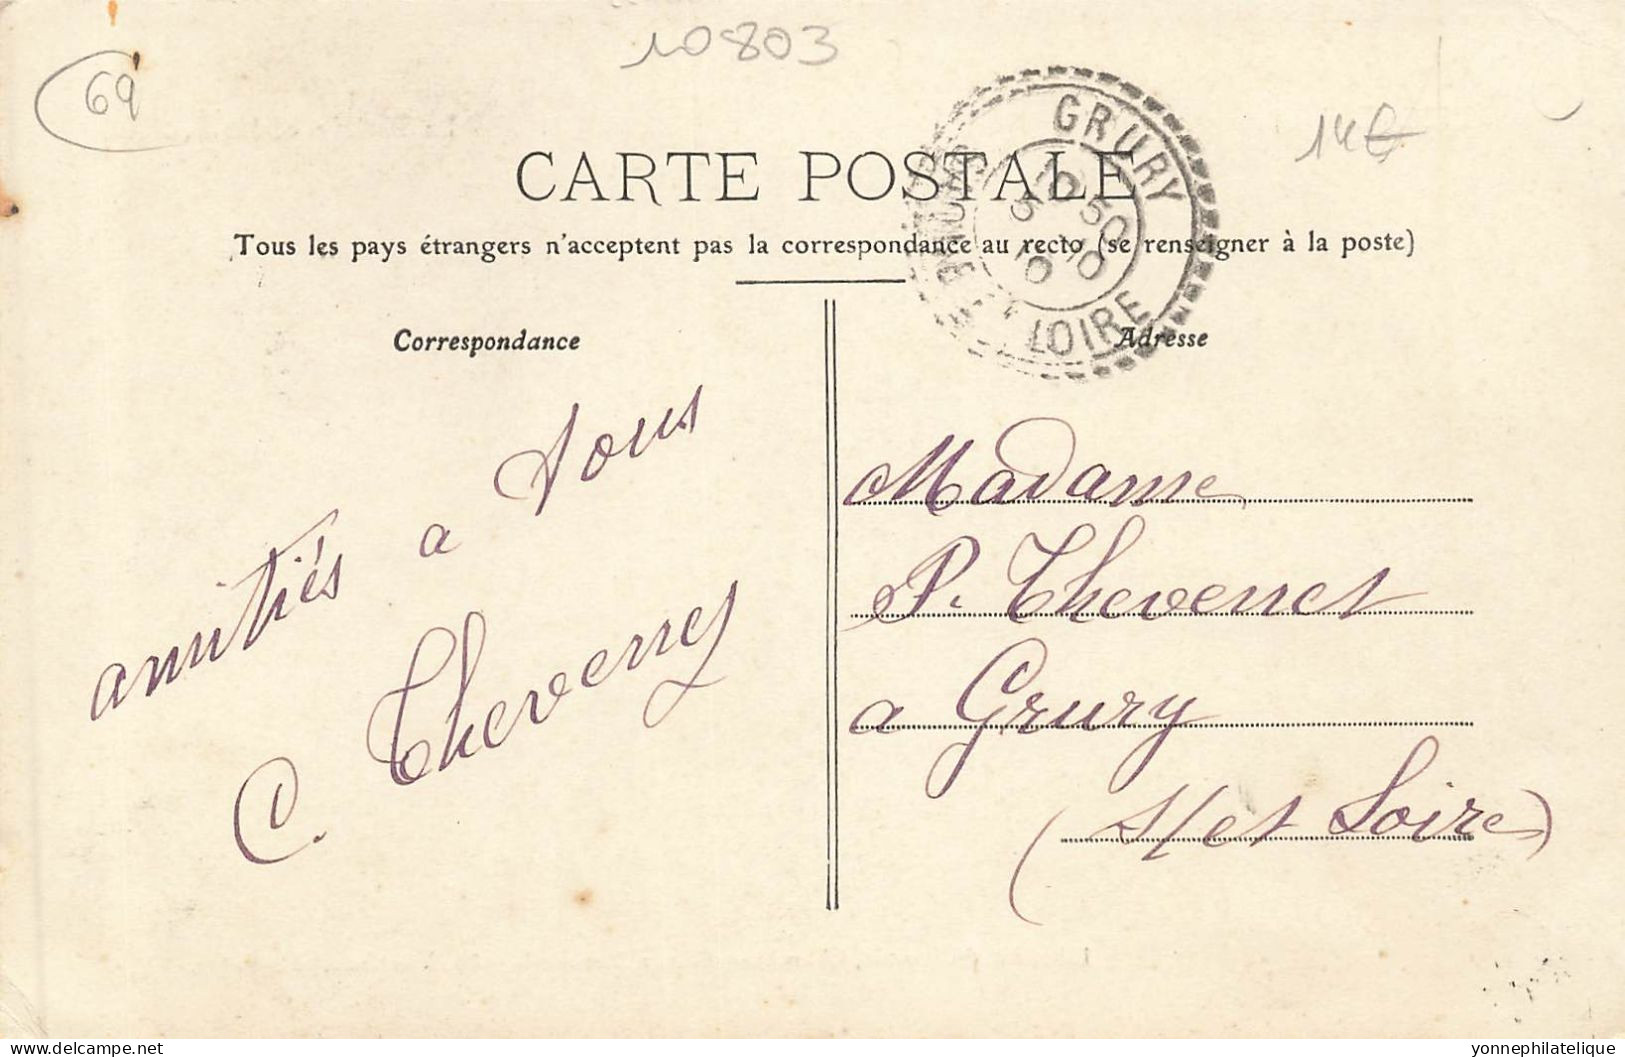 10803
69
14€
CARTE POSTALE
Tous les pays étrangers n'acceptent pas la correspondance au recto (se renseigner à la poste)
GRURY
10 50
5 10
10
LOIRE
Correspondance
Adresse
amitiés a tous
C. Thevenet
Madame
P. Thevenet
a Grury
(S/et Loire)
delcampe.net
yonnephilatelique